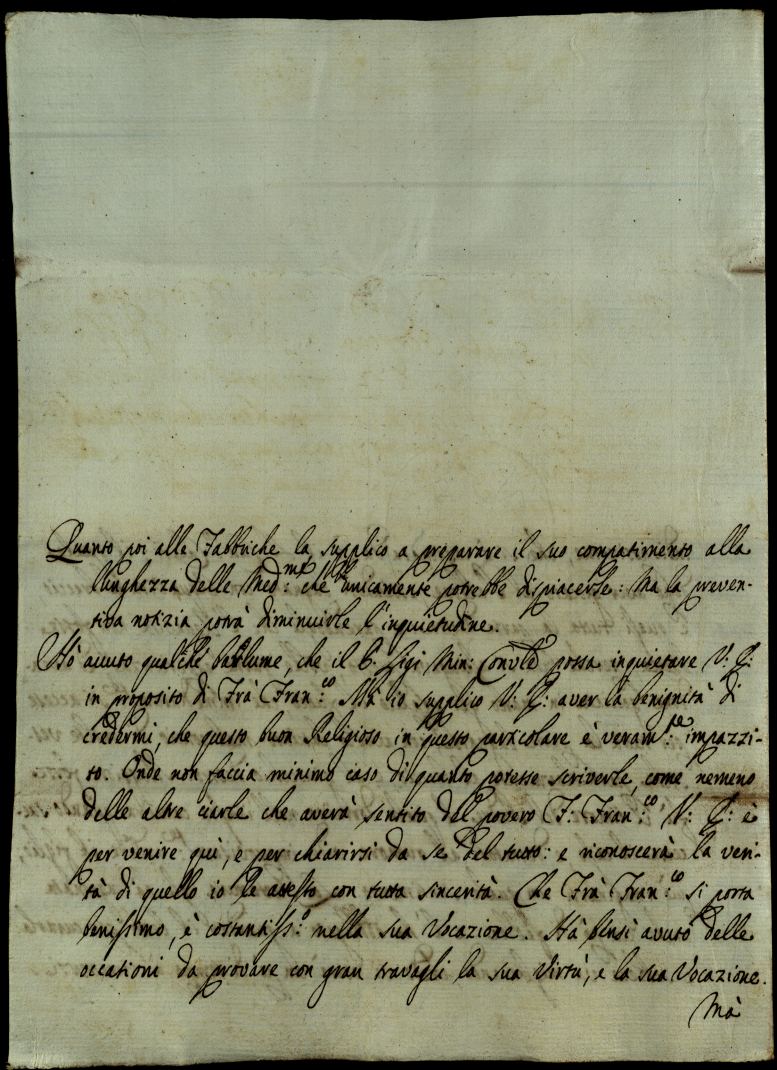 Quanto poi alle Fabbriche la supplico a preparare il suo compatimento alla
lunghezza delle Med:me che unicamente potrebbe dispiacerle: Ma la preven-
tiva notizia potrà diminuirle l'inquietudine.
Hò avuto qualche barlume, che il P. Min: possa inquietare V: P:
in proposito di Frà Fran:co Mà io supplico V: P: aver la benignità di
credermi, che questo buon Religioso in questo particolare è veram:te impazzi-
to. Onde non faccia minimo caso di quanto potesse scriverle, come nemeno
delle altre ciarle che averà sentito del povero F: Fran:co V: P: è
per venire quì, e per chiarirsi da se del tutto: e riconoscerà la veri-
tà di quello io le attesto con tutta sincerità. Che Frà Fran:co si porta
benissimo, è costantiss:o nella sua Vocazione. Hà bensì avuto delle
occationi da provare con gran travagli la sua Virtù, e la sua Vocazione.
Mà